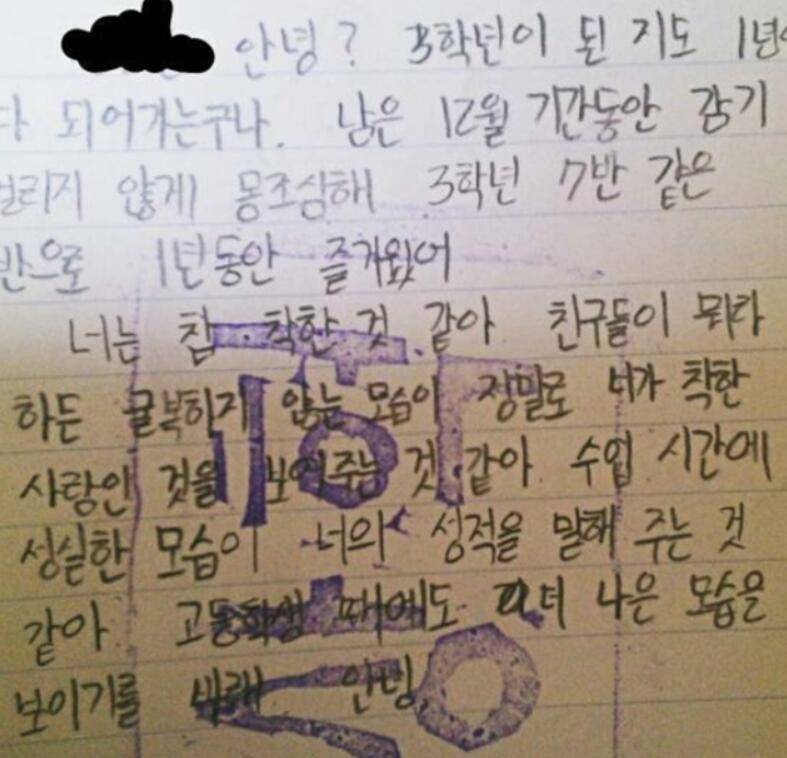 안녕? 3학년이 된 지도 1년이
다 되어가는구나. 남은 12월 기간동안 감기
걸리지 않게 몽조심해 3학년 7반 같은
반으로 1년동안 즐거웠어
너는 참 착한 것 같아 친구들이 뭐라
하든 굴복하지 않는 모습이 정말로 너가 착한
사람인 것을 보여주는 것 같아 수업 시간에
성실한 모습이 너의 성적을 말해 주는 것
같아 고등학생 때에도 더 나은 모습을
보이기를 바래 안녕